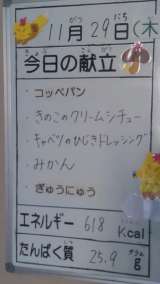 11月29日(木
今日の献立
・コッペパン
・きのこのクリームシチュー
・キャベツのひじきドレッシング
・みかん
・ぎゅうにゅう
エネルギー 618 Kcal
たんぱく質 25.9 g